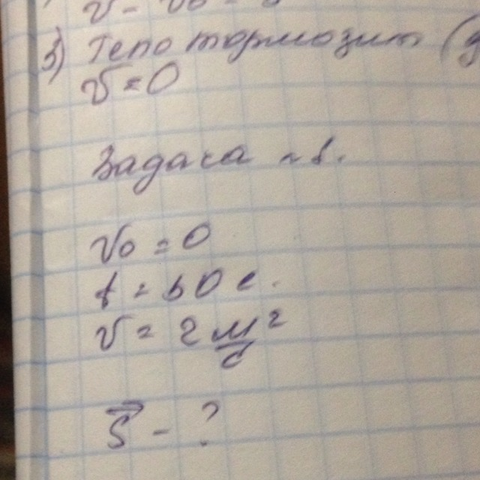 3) Тело тормозит (д
v = 0
Задача №1.
v₀ = 0
t = 60 с.
v = 2 м²/с
S⃗ - ?